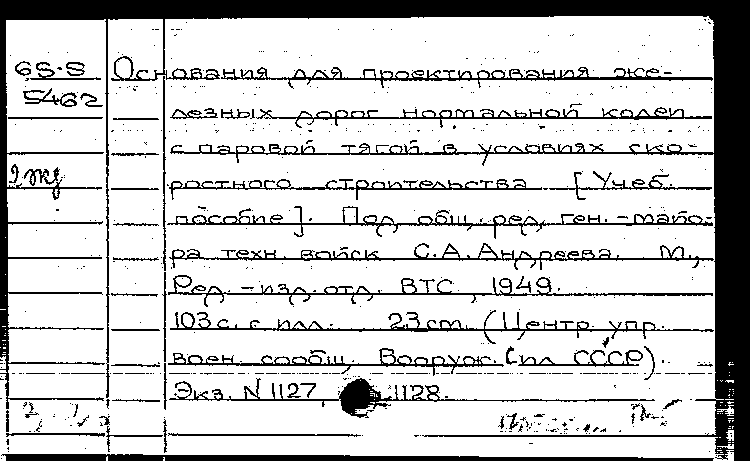 6S-S
5462
Основания для проектирования же-
лезных дорог нормальной колеи
с паровой тягой в условиях ско-
ростного строительства [Учеб.
пособие]. Под общ. ред. ген.-майо-
ра техн. войск С.А. Андреева. М.,
Ред.-изд. отд. ВТС, 1949.
103 с. с илл. 23 cm. (Центр. упр.
воен. сообщ. Вооруж. Сил СССР).
Экз. N 1127, 1128.